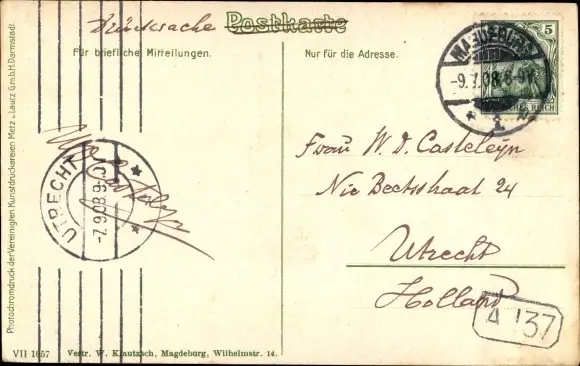 Drucksache Postkarte
Für briefliche Mitteilungen.
Nur für die Adresse.
5
MAGDEBURG
DEUTSCHES REICH
Frau W. D. Casteleyn
Nic Beetsstraat 24
Utrecht
Holland
A 137
UTRECHT
Photochromdruck der Vereinigten Kunstdruckereien Metz u. Lautz G.m.b.H. Darmstadt.
VII 1057 Vertr. W. Klautzsch, Magdeburg, Wilhelmstr. 14.